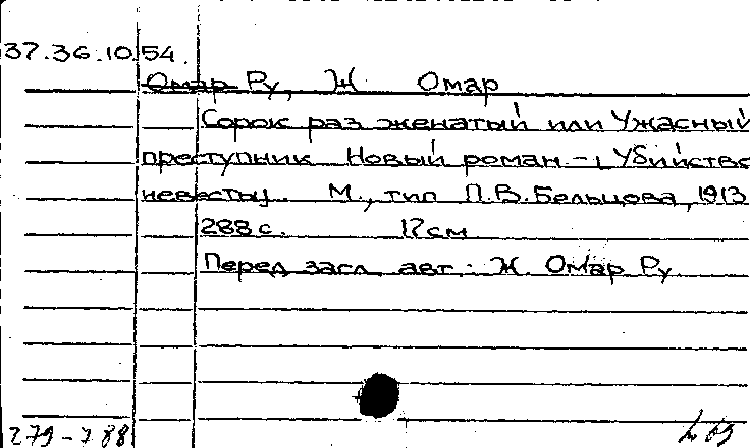 37.36.10.54.
Омар Ру, Ж. Омар
Сорок раз женатый или Ужасный
преступник Новый роман –, Убийство
невесты. М., тип Л.В.Бельцова, 1913
288 с. 17 см
Перед загл. авт.: Ж. Омар Ру
279-788